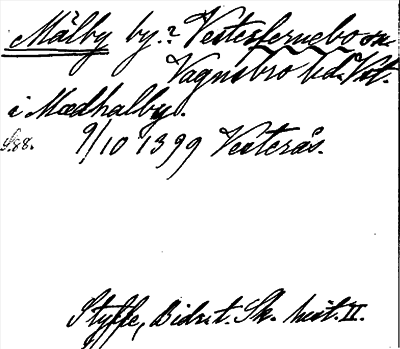 Målby by.? Vestesfernebo sn.
Vagnsbro hd. Vst.
i Mædhalby.
9/10 1399 Vesterås.
Styffe, Bidr. t. Sk. hist. II.